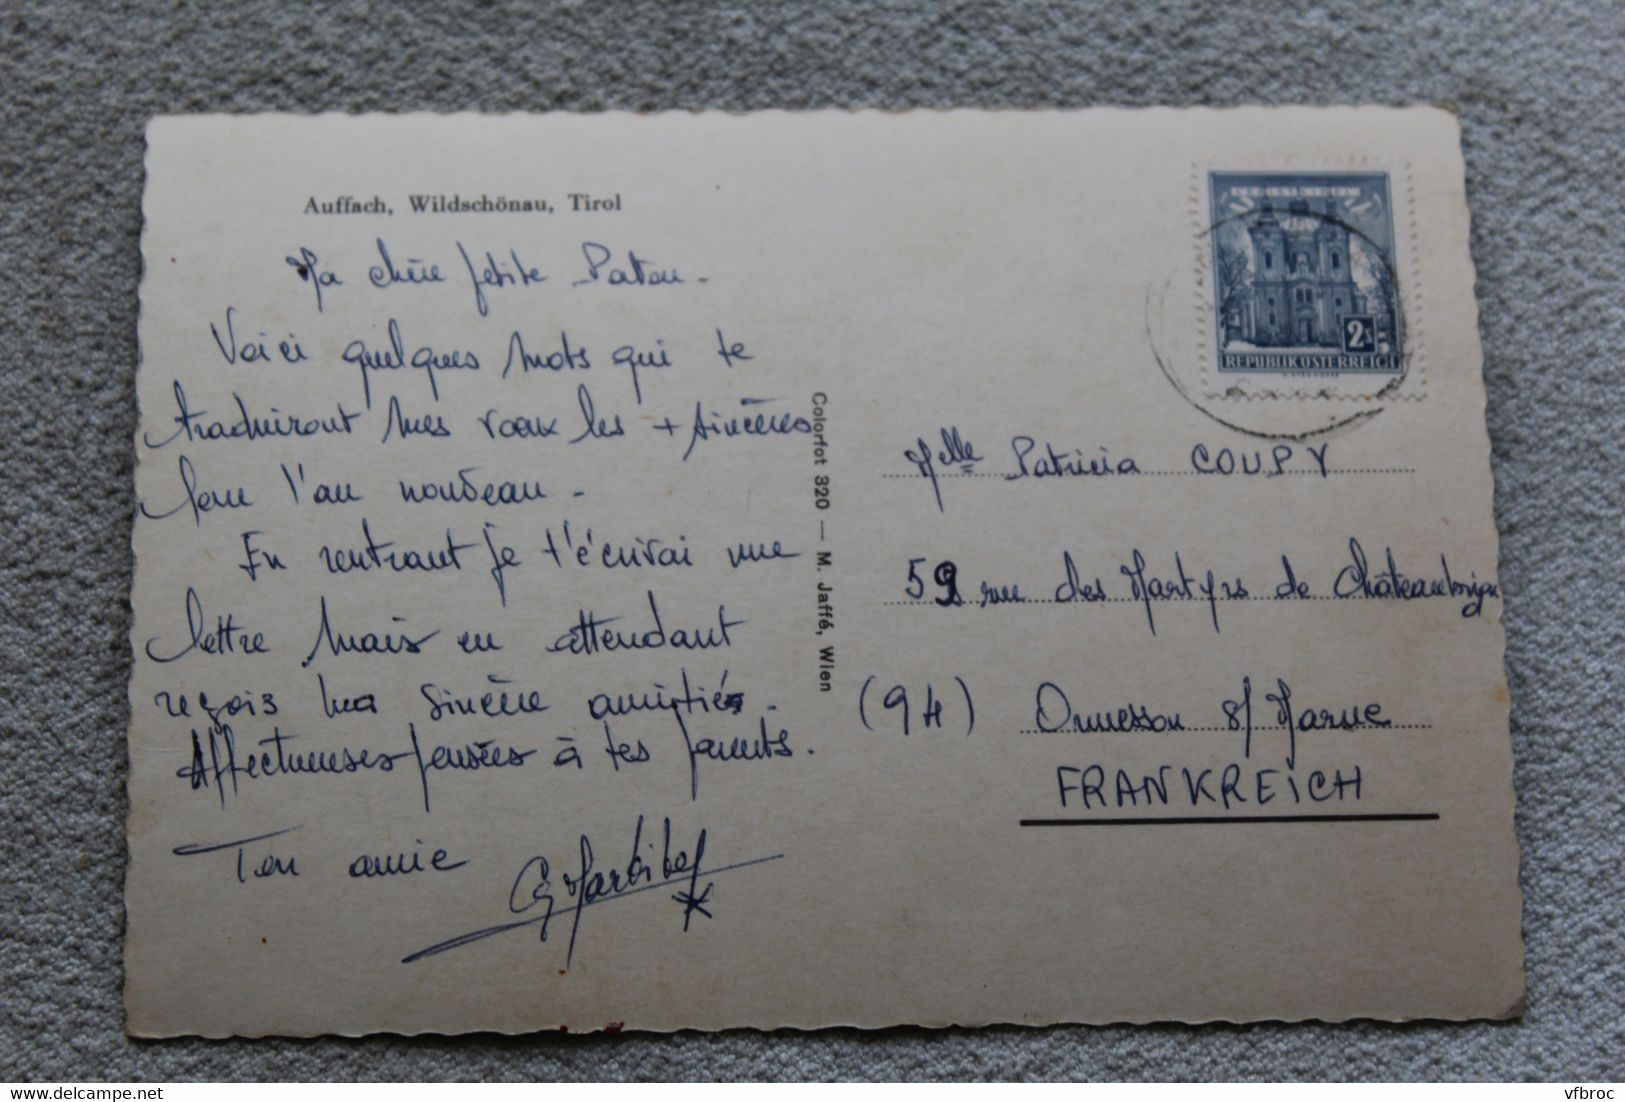 Auffach, Wildschönau, Tirol
Ma chère petite Patou -
Voici quelques mots qui te
traduiront mes vœux les + sincères
pour l'an nouveau -
En rentrant je t'écrirai une
lettre mais en attendant
reçois ma sincère amitié.
Affectueuses pensées à tes parents.
Ton amie
Colorfot 320 — M. Jaffé, Wien
2s
REPUBLIK ÖSTERREICH
Melle Patricia COUPY
59 rue des Martyrs de Châteaubrian
(94) Ormesson s/ Marne
FRANKREICH
vfbroc